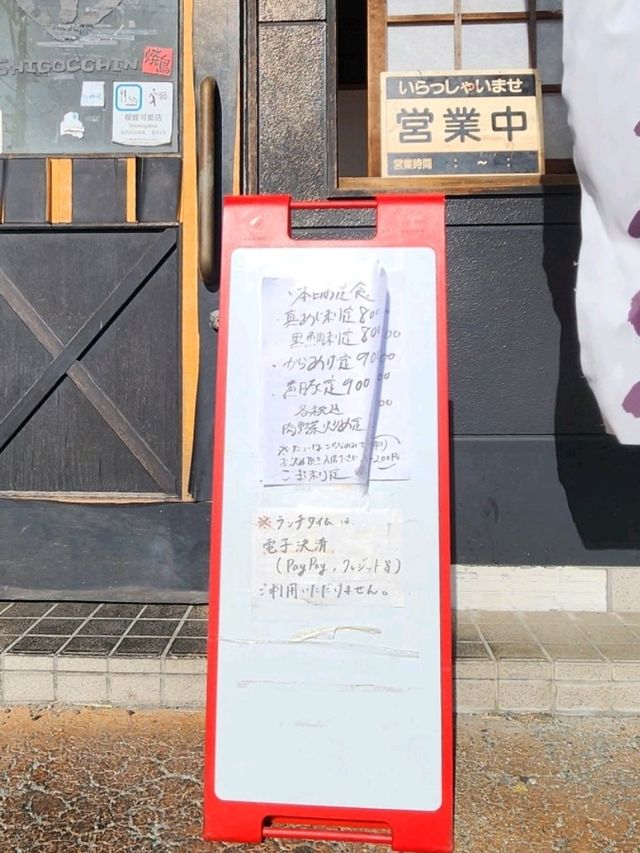 SHIGOCCHIN
焼鳥
喫煙可能店
いらっしゃいませ
営業中
営業時間 : ～ :
本日の定食
真あじ刺定 800
黒鯛刺定 800
からあげ定 900
煮豚定 900
各税込
肉野菜炒め定
※ランチタイムは
電子決済
(PayPay, クレジット等)
ご利用いただけません。